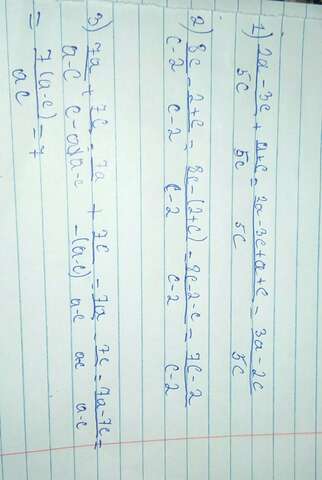 1) 2a-3c/5c + a+c/5c = 2a-3c+a+c/5c = 3a-2c/5c
2) 8c/c-2 - 2+c/c-2 = 8c-(2+c)/c-2 = 8c-2-c/c-2 = 7c-2/c-2
3) 7a/a-c + 7c/c-a = 7a/a-c + 7c/-(a-c) = 7a/a-c - 7c/a-c = 7a-7c/a-c =
= 7(a-c)/a-c = 7